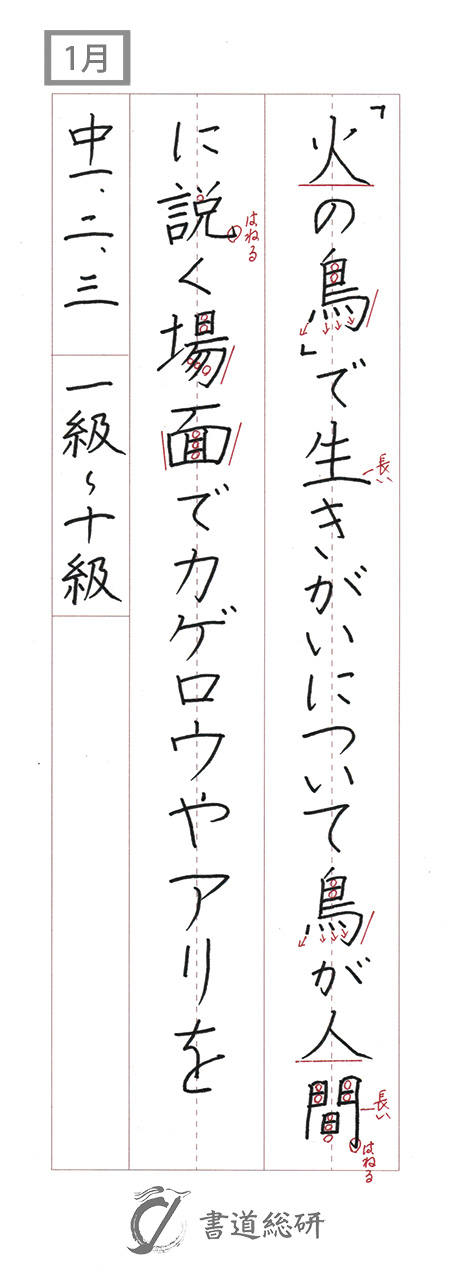 1月
「火の鳥」で生きがいについて鳥が人間
に説く場面でカゲロウやアリを
中一、二、三 一級〜十級
長い
はねる
長い
はねる
書道総研